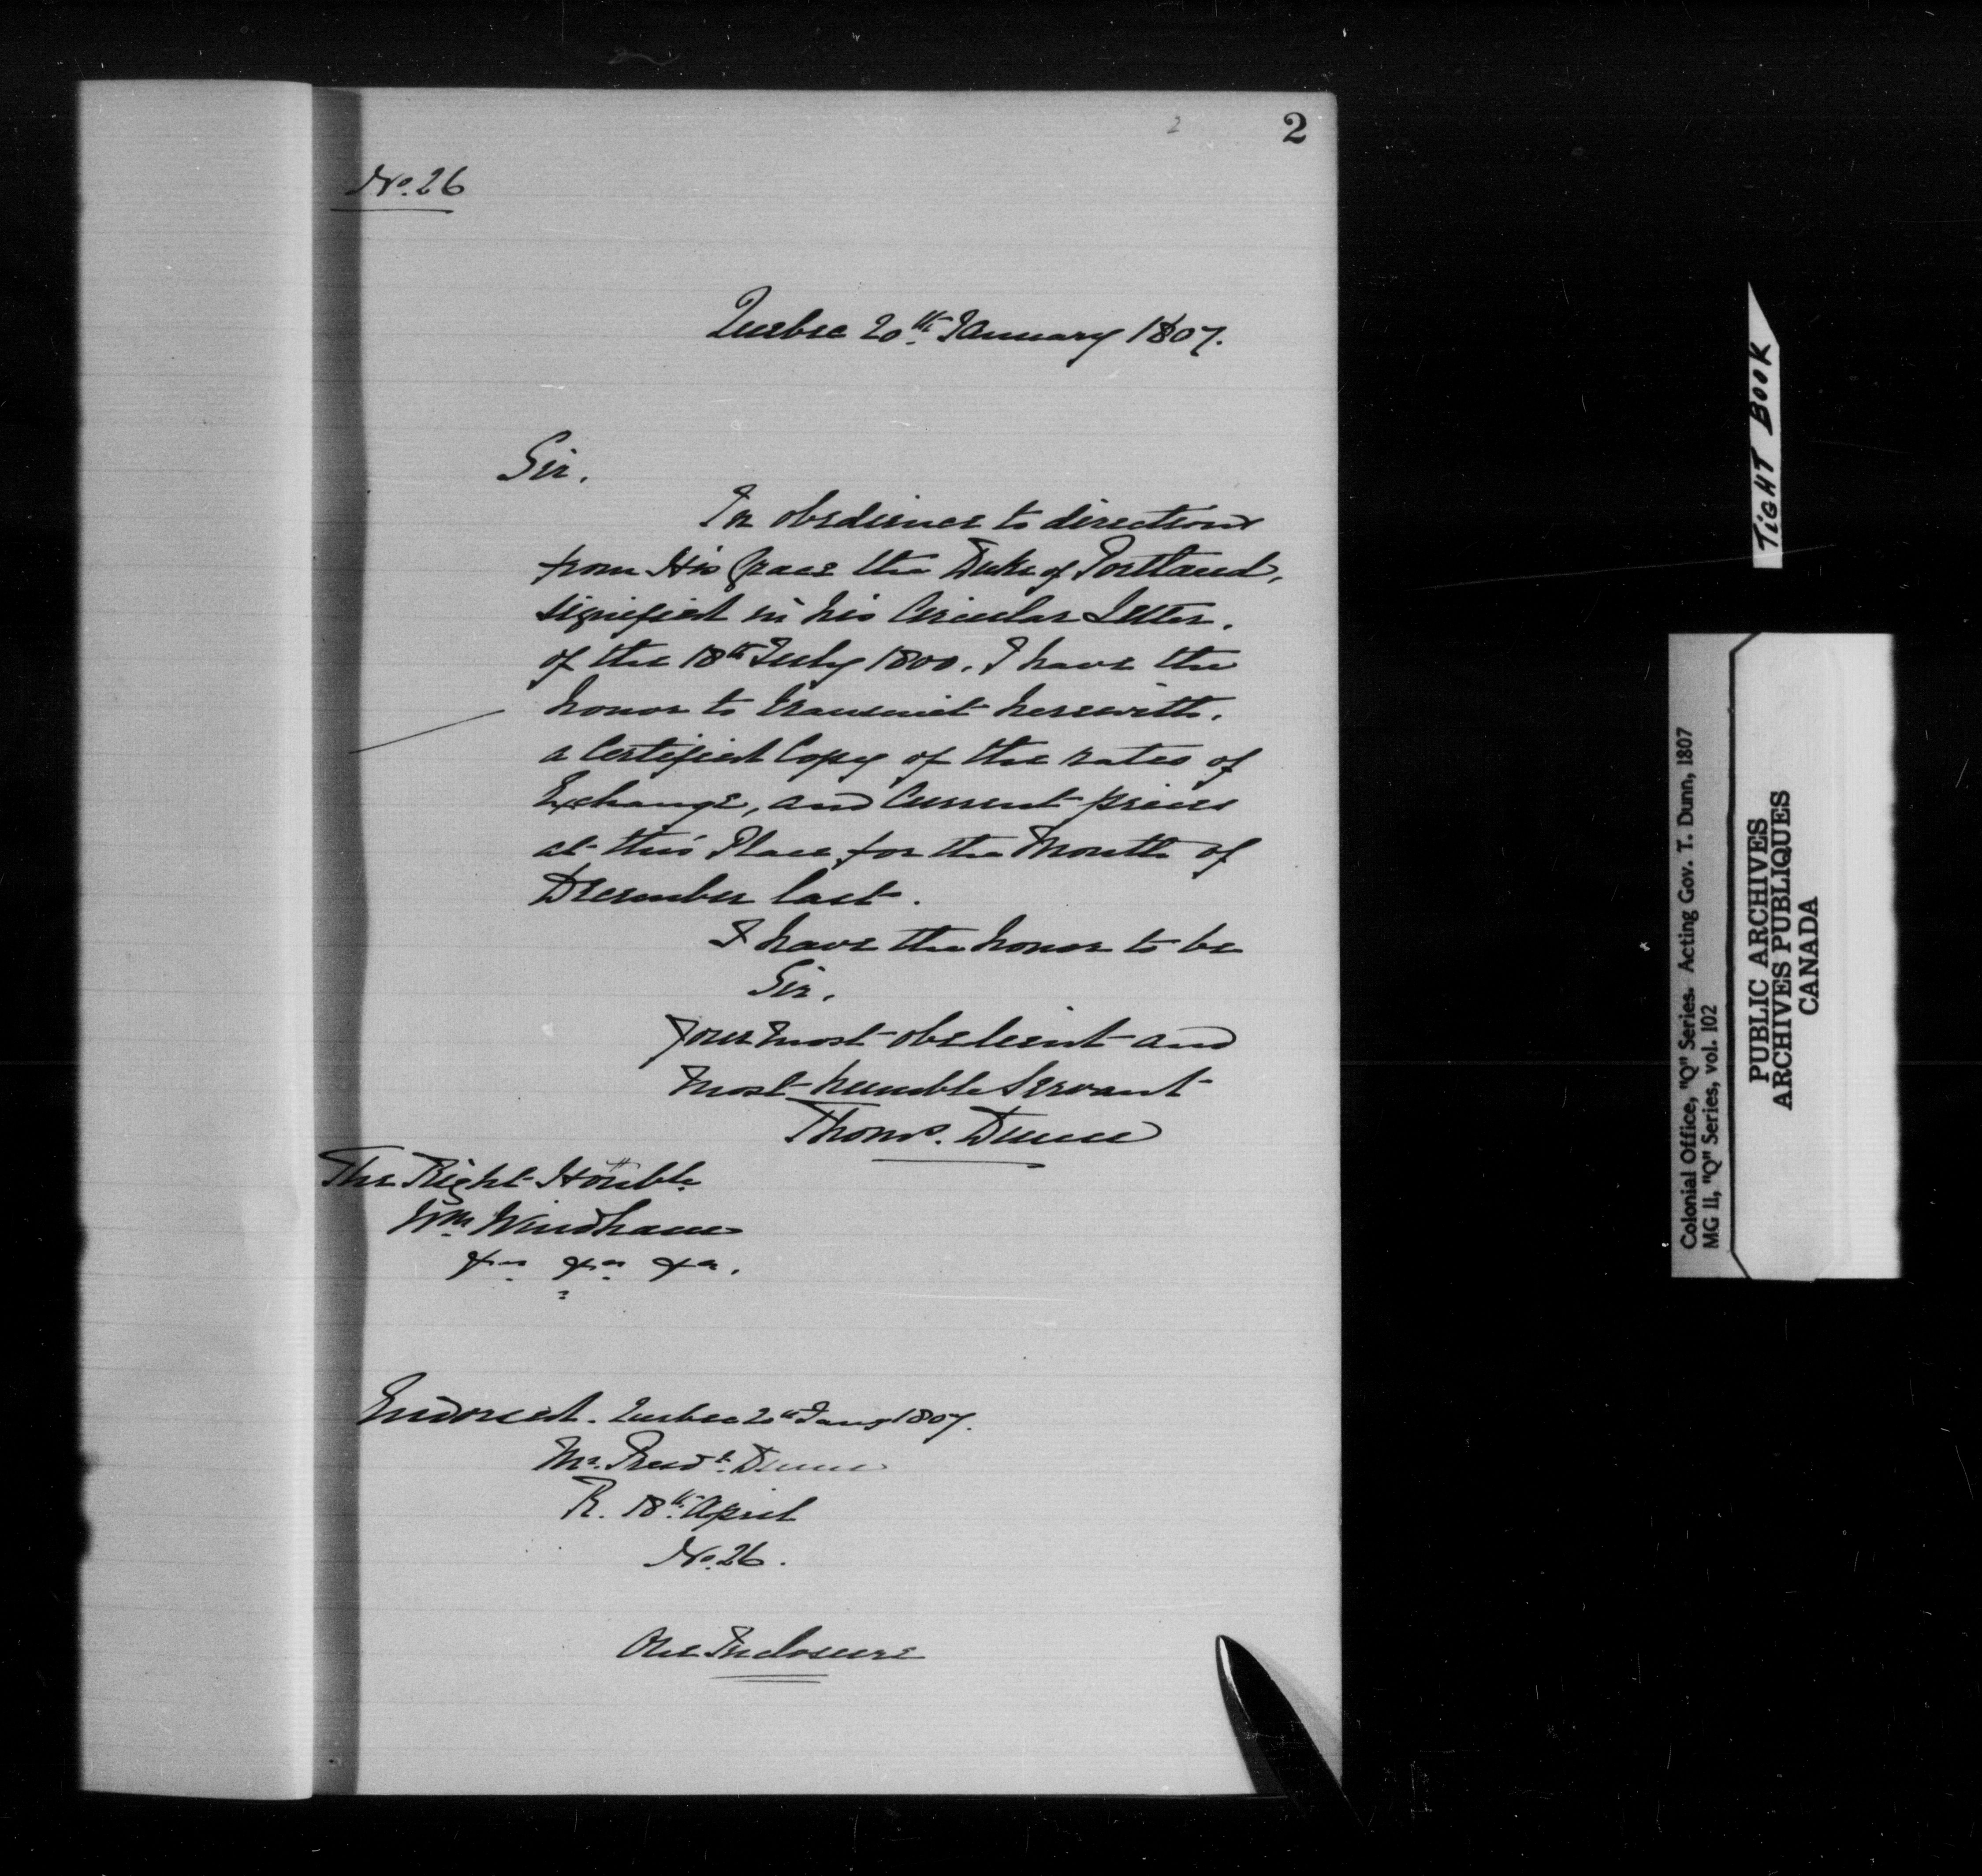 2
2
No. 26
Quebec 20th. January 1807.
Sir.
In obedience to directions
from His Grace the Duke of Portland,
signified in his Circular Letter.
of the 18th July 1800. I have the
honor to transmit herewith.
a Certified Copy of the rates of
Exchange, and Current prices
at this Place for the Month of
December last.
I have the honor to be
Sir.
Your most obedient and
most humble Servant
Thoms. Dunn
The Right Honble
Wm Windham
&a &a &a.
Endorsed. Quebec 20th Jany 1807.
Mr. Presdt. Dunn
R. 18th. April
No. 26.
One Enclosure
TIGHT BOOK
Colonial Office, "Q" Series. Acting Gov. T. Dunn, 1807
MG 11, "Q" Series, vol. 102
PUBLIC ARCHIVES
ARCHIVES PUBLIQUES
CANADA